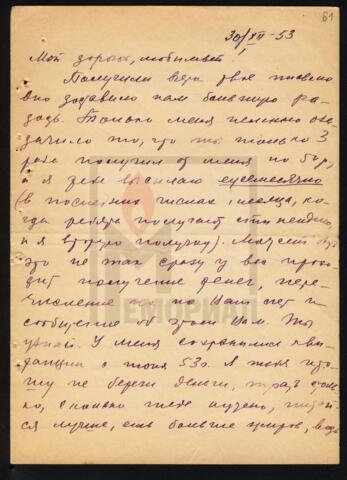 61
30/XII-53
Мой дорогой, любимый!
Получили вчера твое письмо
оно доставило нам большую ра-
дость. Только меня немного оза-
дачило то, что ты только 3
раза получил от меня по 50 р,
а я тебе высылаю ежемесячно
(в последних числах месяца, ко-
гда ребята получают стипендии,
и я вторую получку). Может быть
это не так сразу у вас прохо-
дит получение денег, пере-
числение их на Ваш счет и
сообщение об этом Вам. Ты
узнай. У меня сохранились кви-
танции с июня 53 г. А тебя про-
шу не береги деньги, трать столь-
ко, сколько тебе нужно, питай-
ся лучше, ешь больше жиров, ведь
МЕМОРИАЛ